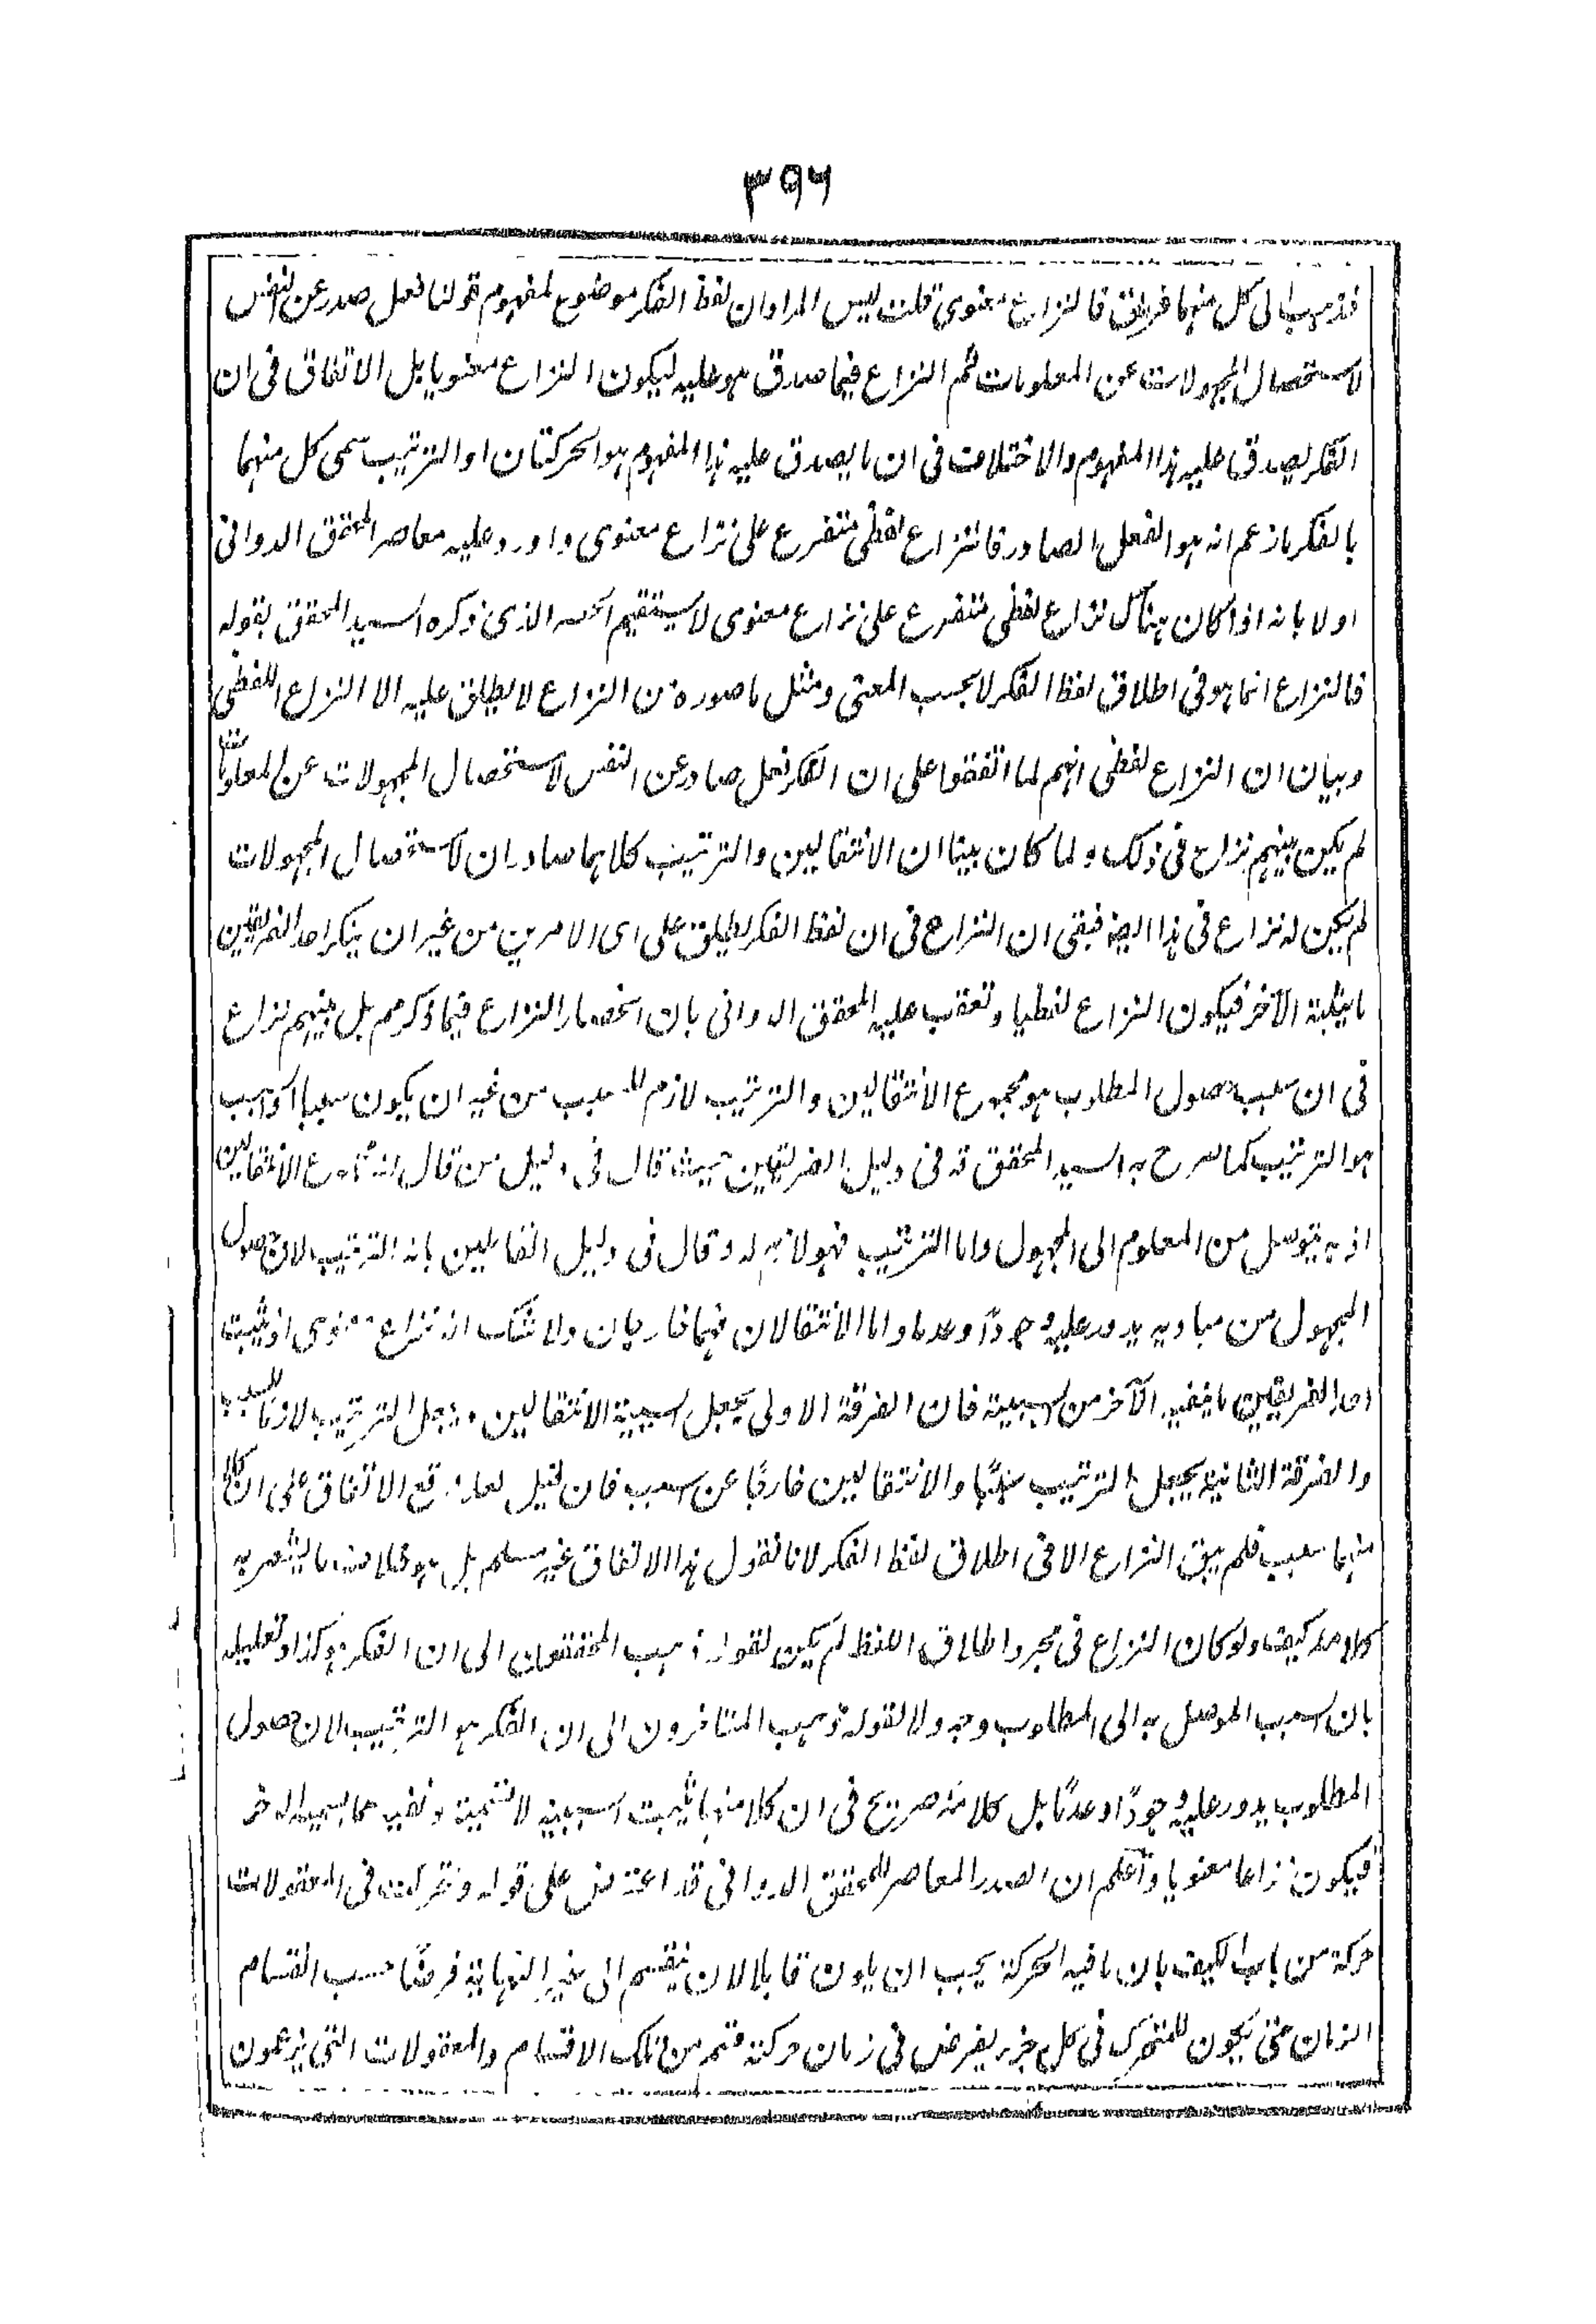 ٣٩٦
فذهب الى كل منهما فريق فالنزاع معنوى قلت ليس المراد ان لفظ الفكر موضوع لمفهوم قولنا فعل صدر عن النفس
لاستحصال المجهولات عن المعلومات ثم النزاع فيما صدق هو عليه ليكون النزاع معنويا بل الاتفاق فى ان
الفكر يصدق عليه هذا المفهوم والاختلاف فى ان ما يصدق عليه هذا المفهوم هو الحركتان او الترتيب سمى كل منهما
بالفكر ما زعم انه هو الفعل الصادر فالنزاع لفظى متفرع على نزاع معنوى واورد عليه معاصر المحقق الدوانى
اولا بانه اذا كان هناك نزاع لفظى متفرع على نزاع معنوى لا يستقيم الحصر الذى ذكره السيد المحقق بقوله
فالنزاع انما هو فى اطلاق لفظ الفكر لا بحسب المعنى ومثل ما صوره من النزاع لا يطلق عليه الا النزاع اللفظى
وبيان ان النزاع لفظى انهم لما اتفقوا على ان الفكر فعل صادر عن النفس لاستحصال المجهولات عن المعلومات
لم يكن بينهم نزاع فى ذلك ولما كان بينا ان الانتقالين والترتيب كلاهما صادران لاستحصال المجهولات
لم يكن له نزاع فى هذا ايضا فبقى ان النزاع فى ان لفظ الفكر يطلق على اى الامرين من غير ان ينكر احد الفريقين
ما يثبته الآخر فيكون النزاع لفظيا وتعقب عليه المحقق الدوانى بان انحصار النزاع فيما ذكر مم بل بينهم نزاع
فى ان سبب حصول المطلوب هو مجموع الانتقالين والترتيب لازم للسبب من غير ان يكون سببا او السبب
هو الترتيب كما صرح به السيد المحقق قه فى دليل الفريقين حيث قال فى دليل من قال انه مجموع الانتقالين
اذ به يتوصل من المعلوم الى المجهول واما الترتيب فهو لازم له وقال فى دليل القائلين بانه الترتيب لان حصول
المجهول من مباديه يدور عليه وجودًا وعدما واما الانتقالان فهما خارجان ولا شك انه نزاع معنوى اذ يثبت
احد الفريقين ما ينفيه الآخر من السببية فان الفرقة الاولى يجعل السببية الانتقالين ويجعل الترتيب لازما للسبب
والفرقة الثانية يجعل الترتيب سببًا والانتقالين خارجًا عن السبب فان قيل لعله وقع الاتفاق على ان كلا
منهما سبب فلم يبق النزاع الا فى اطلاق لفظ الفكر لانا نقول هذا الاتفاق غير مسلم بل هو خلاف ما يشعر به
كلامه كيف ولو كان النزاع فى مجرد اطلاق اللفظ لم يكن لقوله ذهب المحققون الى ان الفكر هو كذا وتعليله
بان السبب الموصل به الى المطلوب وجه ولا لقوله ذهب المتاخرون الى ان الفكر هو الترتيب لان حصول
المطلوب يدور عليه وجودًا وعدمًا بل كلامه صريح فى ان كلا منهما يثبت السببية لا تسميه ونفيه عما يسميه الآخر
فيكون نزاعا معنويا واعلم ان الصدر المعاصر للمحقق الدوانى قد اعترض على قوله وتحركت فى المعقولات
حركة من باب الكيف بان ما فيه الحركة يجب ان يكون قابلا لان ينقسم الى غير النهاية فرضًا حسب انقسام
الزمان حتى يكون للمتحرك فى كل جزء يفرض فى زمان حركته قسم من تلك الاقسام والمعقولات التى يزعمون